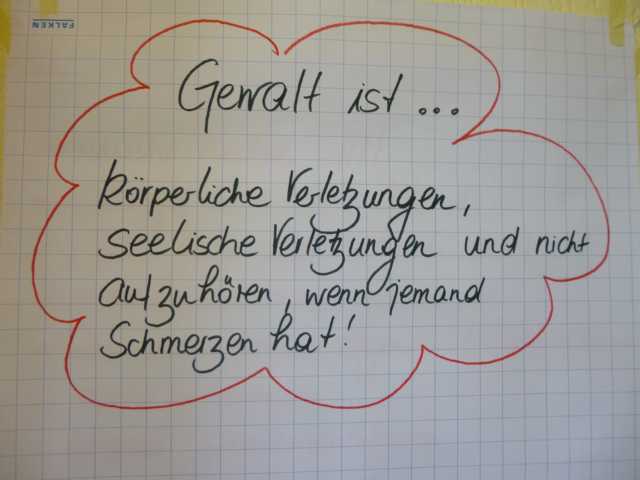 FALKEN
Gewalt ist ...
körperliche Verletzungen,
seelische Verletzungen und nicht
aufzuhören, wenn jemand
Schmerzen hat!